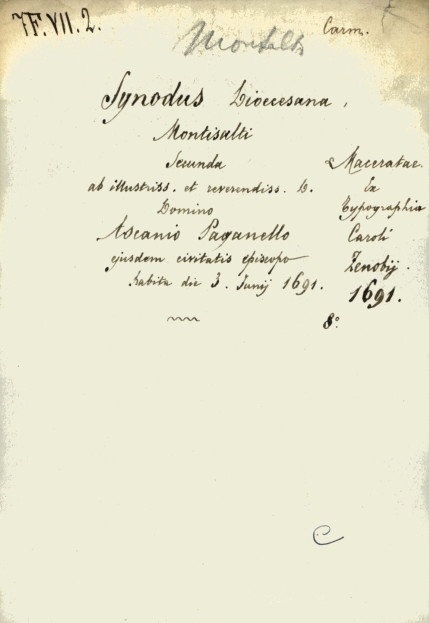 7F.VII.2.
Carm.
Montalto
Synodus Dioecesana,
Montisalti
Secunda
ab illustriss. et reverendiss. D.
Domino
Ascanio Paganello
ejusdem civitatis episcopo
habita die 3. Junij 1691.
Maceratae.
Ex
Typographia
Caroli
Zenobij.
1691.
8°.
C